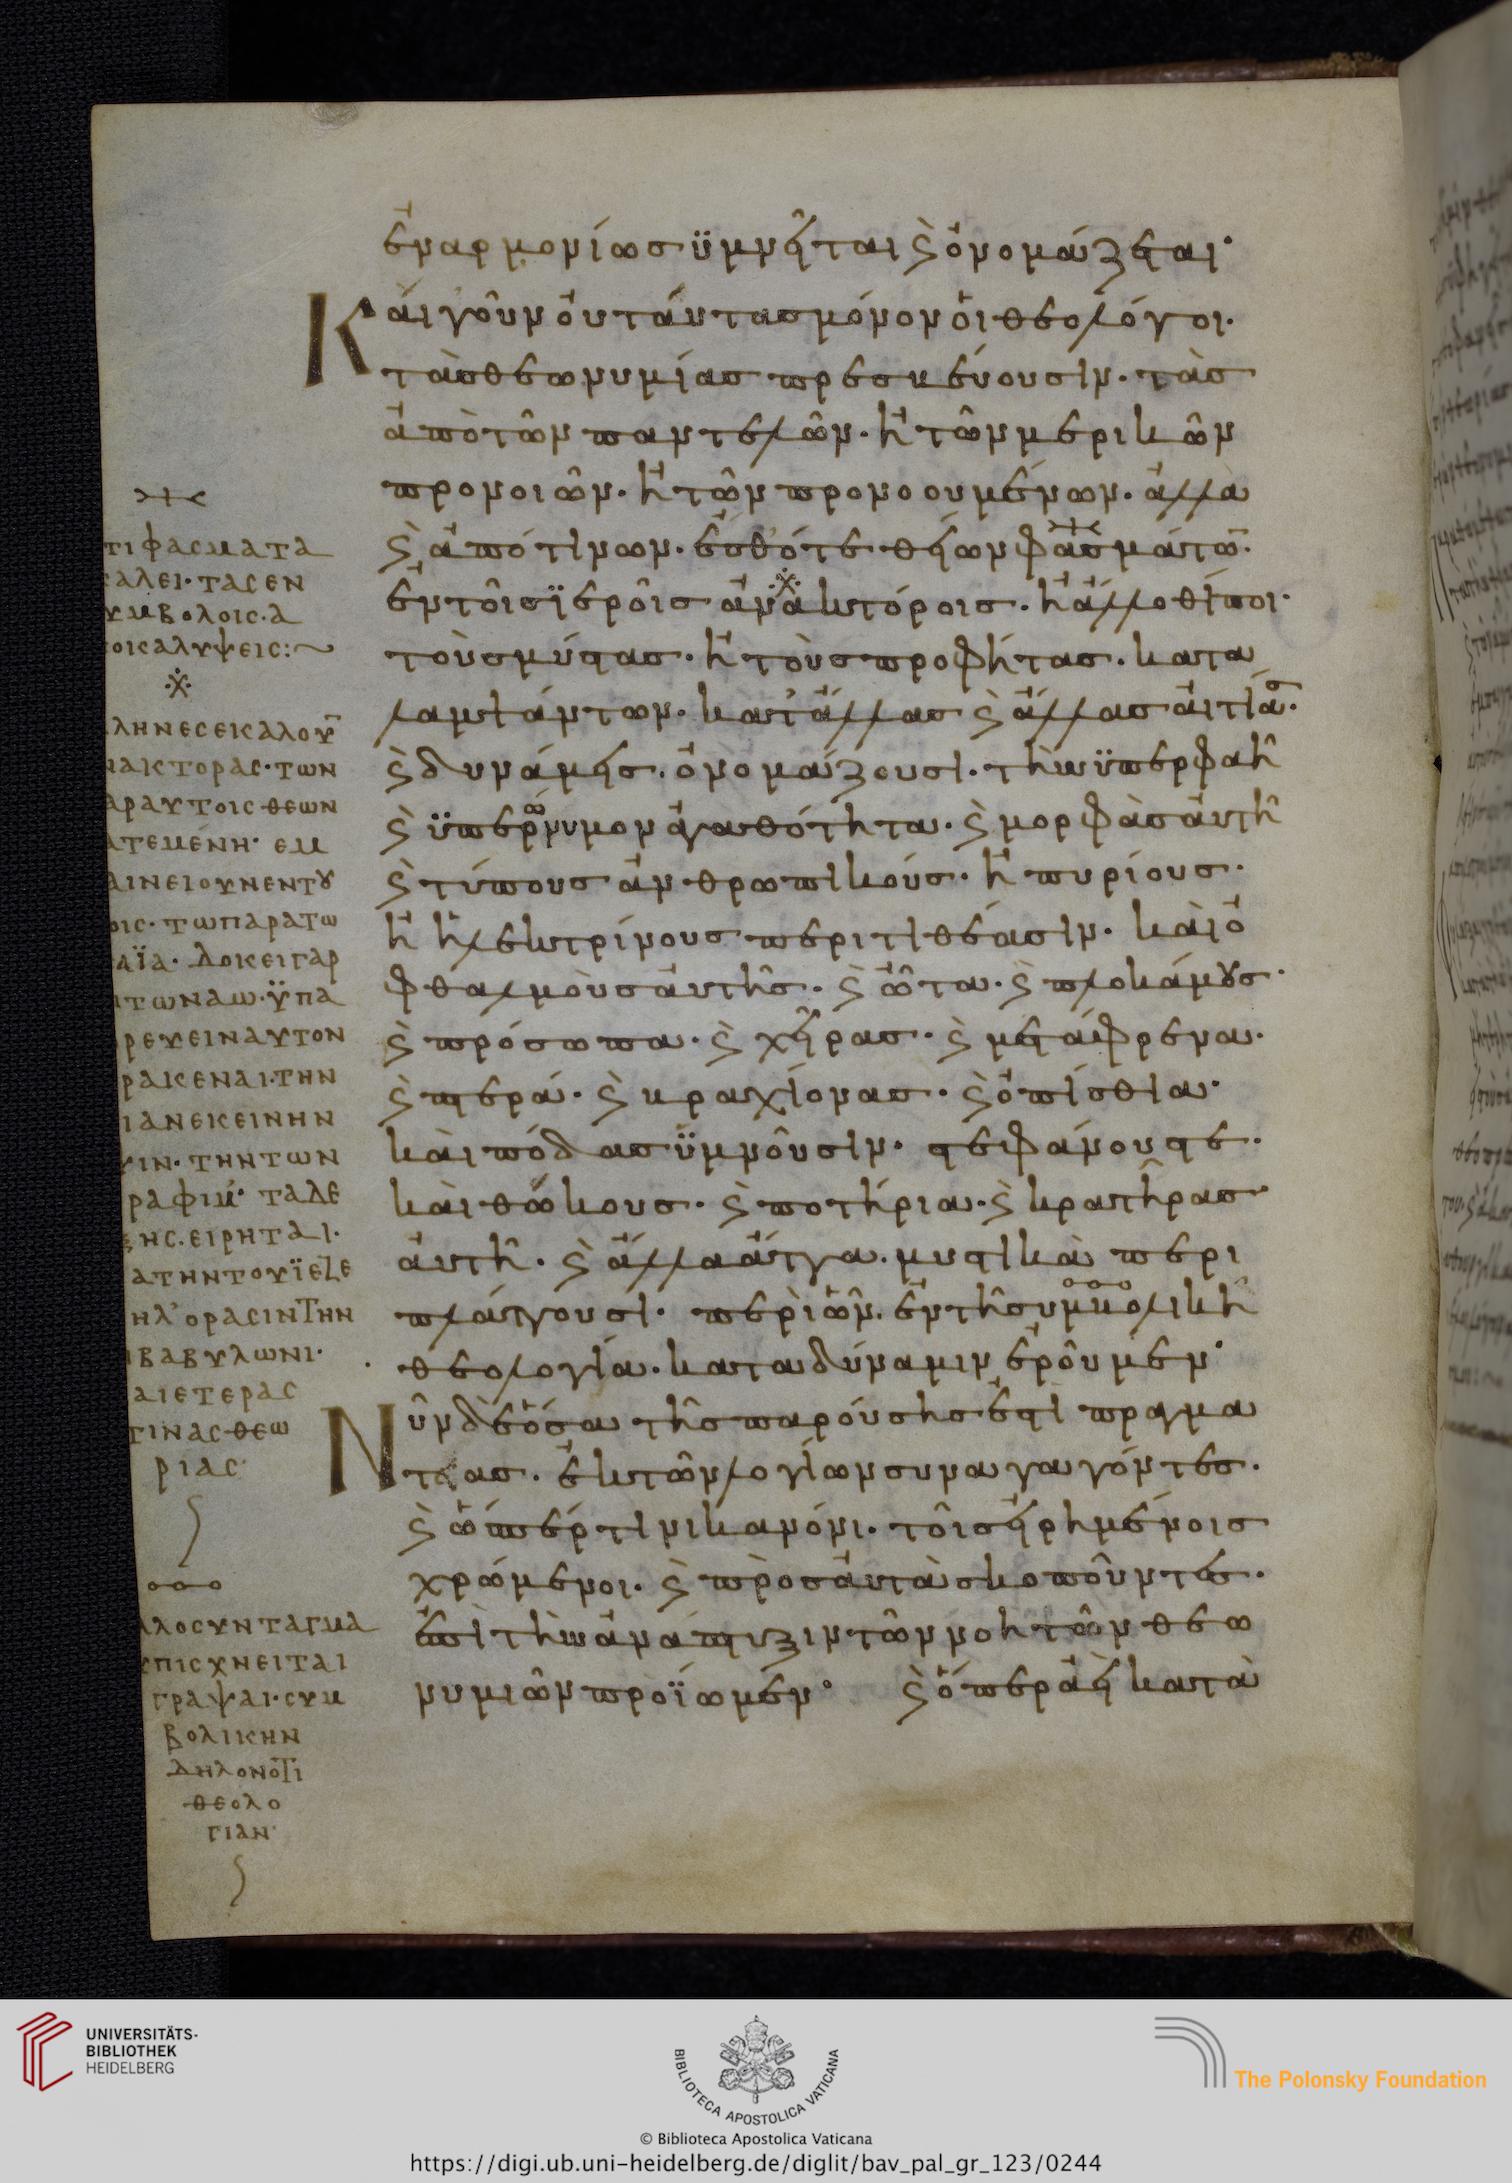 ἐναρμονίως ϋμνεῖται ϗ ὀνομάζεται·
Καί γοῦν οὐ ταύτας μόνον οἱ θεολόγοι·
τὰς θεωνυμίας πρεσβεύουσιν· τὰς
ἀπὸ τῶν παντελῶν· ἢ τῶν μερικῶν
προνοιῶν· ἢ τῶν προνοουμένων· ἀλλὰ
ϗ ἀπό τινων· ἔσθότε θείων φασμάτω̅·
ἐν τοῖς ϊεροῖς ἀνακτόροις· ἢ ἄλλοθί ποι·
τοὺς μύστας· ἢ τοὺς προφήτας· κατα
λαμψάντων· κατ' ἄλλας ϗ ἄλλας αἰτίας·
ϗ δυνάμεις· ὀνομάζουσι· τὴν ϋπερφαῆ
ϗ ϋπερώνυμον ἀγαθότητα· ϗ μορφὰς αὐτῆ
ϗ τύπους ἀνθρωπικούς· ἢ πυρίους·
ἢ ἠλεκτρίνους περιτιθέασιν· καὶ ὀ
φθαλμοὺς αὐτῆς· ϗ ὦτα· ϗ πλοκάμους·
ϗ πρόσωπα· ϗ χεῖρας· ϗ μετάφρενα·
ϗ πτερά· ϗ βραχίονας· ϗ ὀπίσθια·
καὶ πόδας ϋμνοῦσιν· στεφάνους τε·
καὶ θώκους· ϗ ποτήρια· ϗ κρατῆρας
αὐτῆ· ϗ ἄλλα ἄττα· μυστικὰ περι
πλάττουσι· περὶ ὧν· ἐν τῆ συμβολικῆ
θεολογία· κατα δύναμιν ἐροῦμεν·
Νῦν δὲ ὅσα τῆς παρούσης ἐστὶ πραγμα
τείας· ἐκ τῶν λογίων συναγαγόντες·
ϗ ὥσπέρ τινι κανόνι· τοῖς εἰρημένοις
χρώμενοι· ϗ πρὸς αὐτὰ σκοποῦντες·
ἐπὶ τὴν ἀνάπτυξιν τῶν νοητῶν θεω
νυμιῶν προϊωμεν· ϗ ὅπερ ἀεὶ κατὰ
τι φασματα
καλει· τας εν
συμβολοις· α
ποκαλυψεις:~
λληνες εκαλου̅
νακτορας· των
αρ αυτοις θεων
α τεμένη· εμ
αινει ουν εν του
οις· τω παρα τω
δοκει γαρ
ϋπα
ρευειν αυτον
ρακεναι· την
ιαν εκεινην
ιν· την των
ραφιμ· τα δε
ης· ειρηται·
ατην του ϊεζε
ηλ' ορασιν την
βαβυλωνι·
αι ετερας
τινας θεω
ριας·
λλο συνταγμα
υπισχνειται
γραψαι· συμ
βολικην
δηλονοτι
θεολο
γιαν·
UNIVERSITÄTS-
BIBLIOTHEK
HEIDELBERG
BIBLIOTECA APOSTOLICA VATICANA
The Polonsky Foundation
© Biblioteca Apostolica Vaticana
https://digi.ub.uni-heidelberg.de/diglit/bav_pal_gr_123/0244